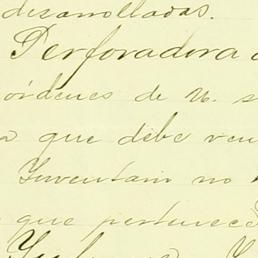 desarrolladas.
Perforadora
órdenes de U. s
a que debe ven
Inventam no
que pertenece